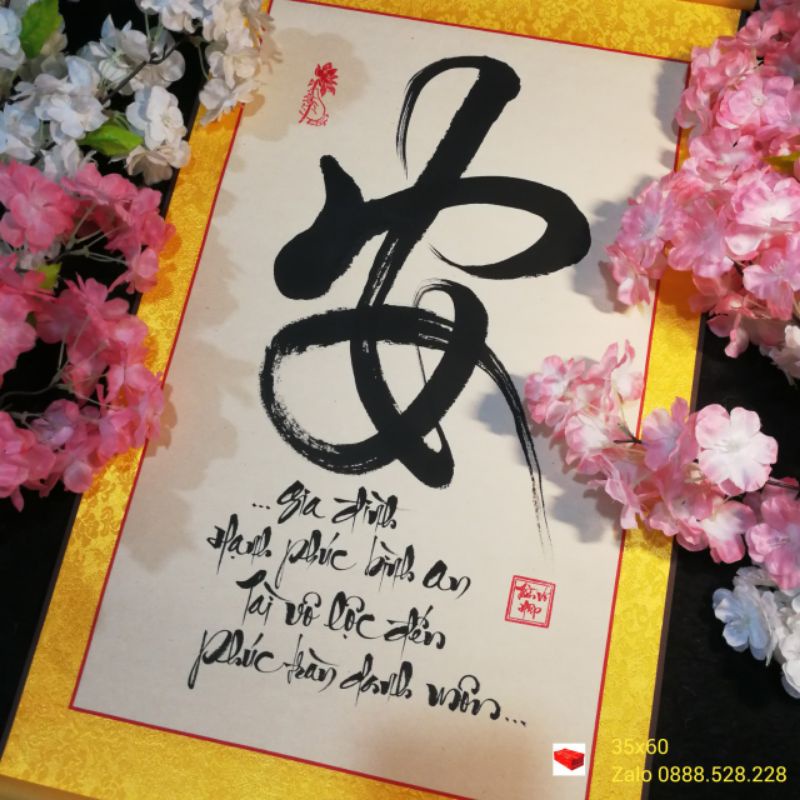 安
... Gia đình
Hạnh phúc bình an
Tài vô lộc đến
Phúc tràn danh môn...
35x60
Zalo 0888.528.228